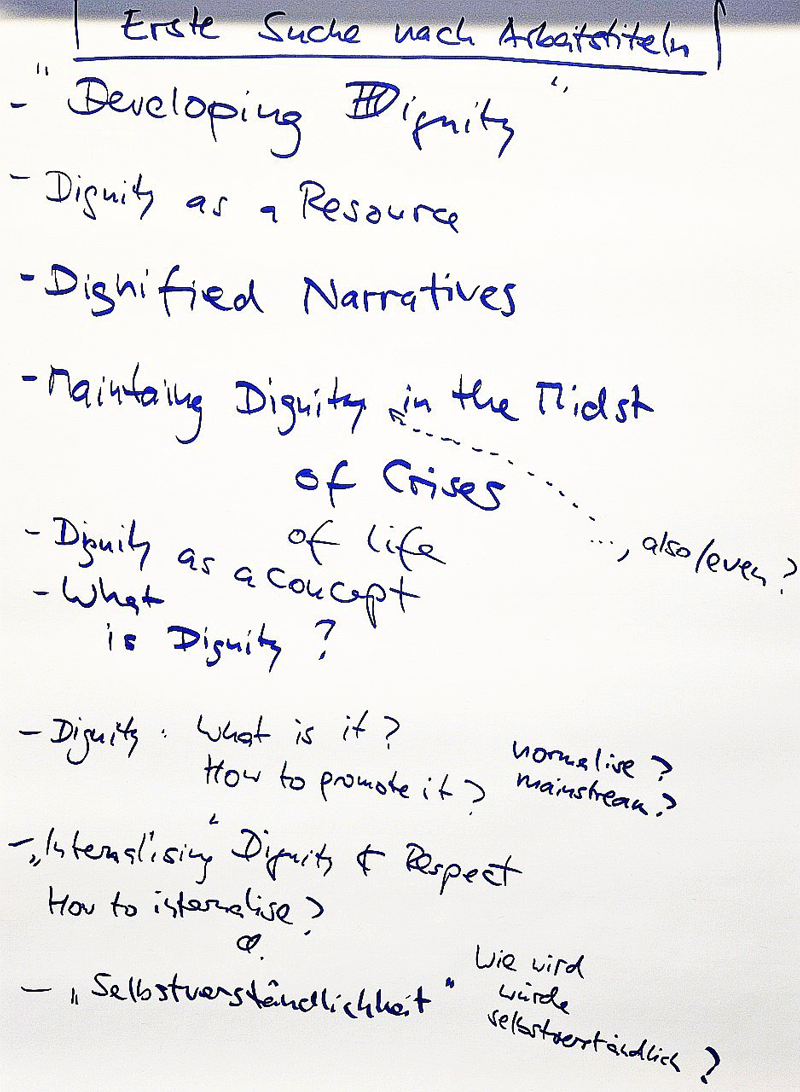 Erste Suche nach Arbeitstiteln
- "Developing Dignity"
- Dignity as a Resource
- Dignified Narratives
- Maintaing Dignity in the Midst
of Crises
of life
..., also/even?
- Dignity as a concept
- What
is Dignity?
- Dignity: What is it?
How to promote it?
normalise?
mainstream?
- „Internalising" Dignity & Respect
How to internalise?
- „Selbstverständlichkeit"
Wie wird
würde
selbstverständlich?